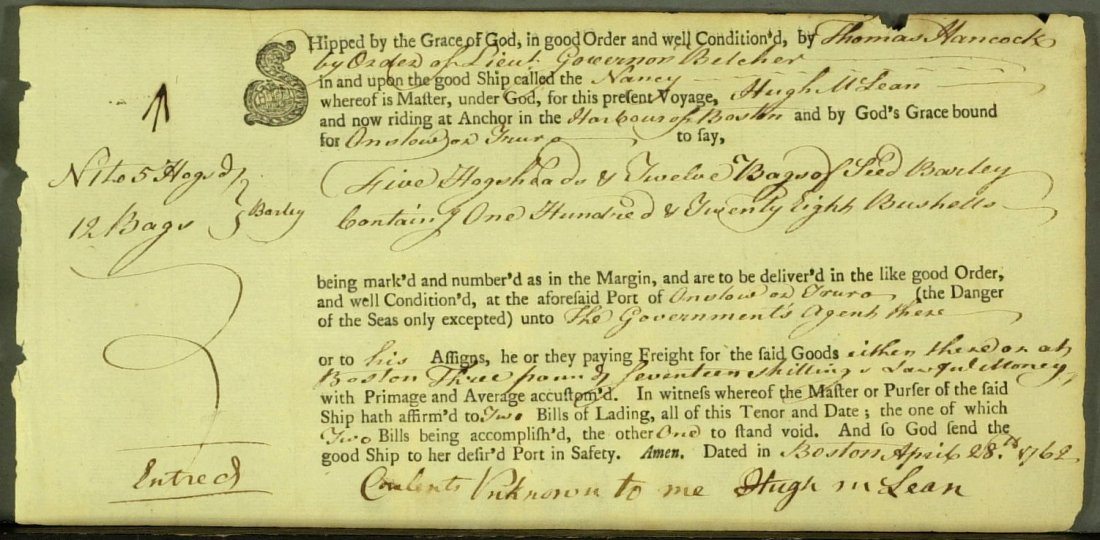 SHipped by the Grace of God, in good Order and well Condition'd, by Thomas Hancock
by Order of Lieut. Governor Belcher
in and upon the good Ship called the Nancy
whereof is Maſter, under God, for this preſent Voyage, Hugh McLean
and now riding at Anchor in the Harbour of Boston and by God's Grace bound
for Onslow or Truro to ſay,
N 1 to 5 Hogsds
12 Bags } Barley
Five Hogsheads & Twelve Bags of Seed Barley
Containg One Hundred & Twenty Eight Bushells
being mark'd and number'd as in the Margin, and are to be deliver'd in the like good Order,
and well Condition'd, at the aforeſaid Port of Onslow or Truro (the Danger
of the Seas only excepted) unto The Government's Agent there
or to his Aſſigns, he or they paying Freight for the ſaid Goods either there or at
Boston Three pounds seventeen shillings Lawful Money
with Primage and Average accuſtom'd. In witneſs whereof the Maſter or Purſer of the ſaid
Ship hath affirm'd to Two Bills of Lading, all of this Tenor and Date ; the one of which
Two Bills being accompliſh'd, the other One to ſtand void. And ſo God ſend the
good Ship to her deſir'd Port in Safety. Amen. Dated in Boston April 28.th 1762
Entred
Contents Unknown to me Hugh McLean